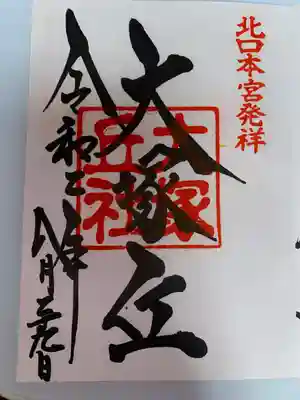 北口本宮発祥
大塚丘
大塚
丘社
令和 年
八月 日